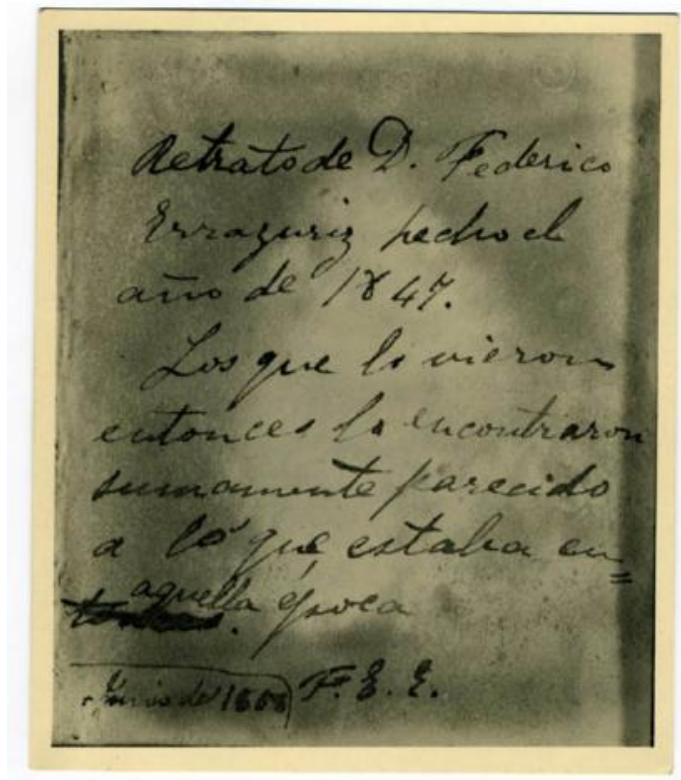 Retrato de D. Federico
Errazuriz hecho el
año de 1847.
Los que lo vieron
entonces lo encontraron
sumamente parecido
a lo que estaba en=
aquella época
Junio de
F. E. E.